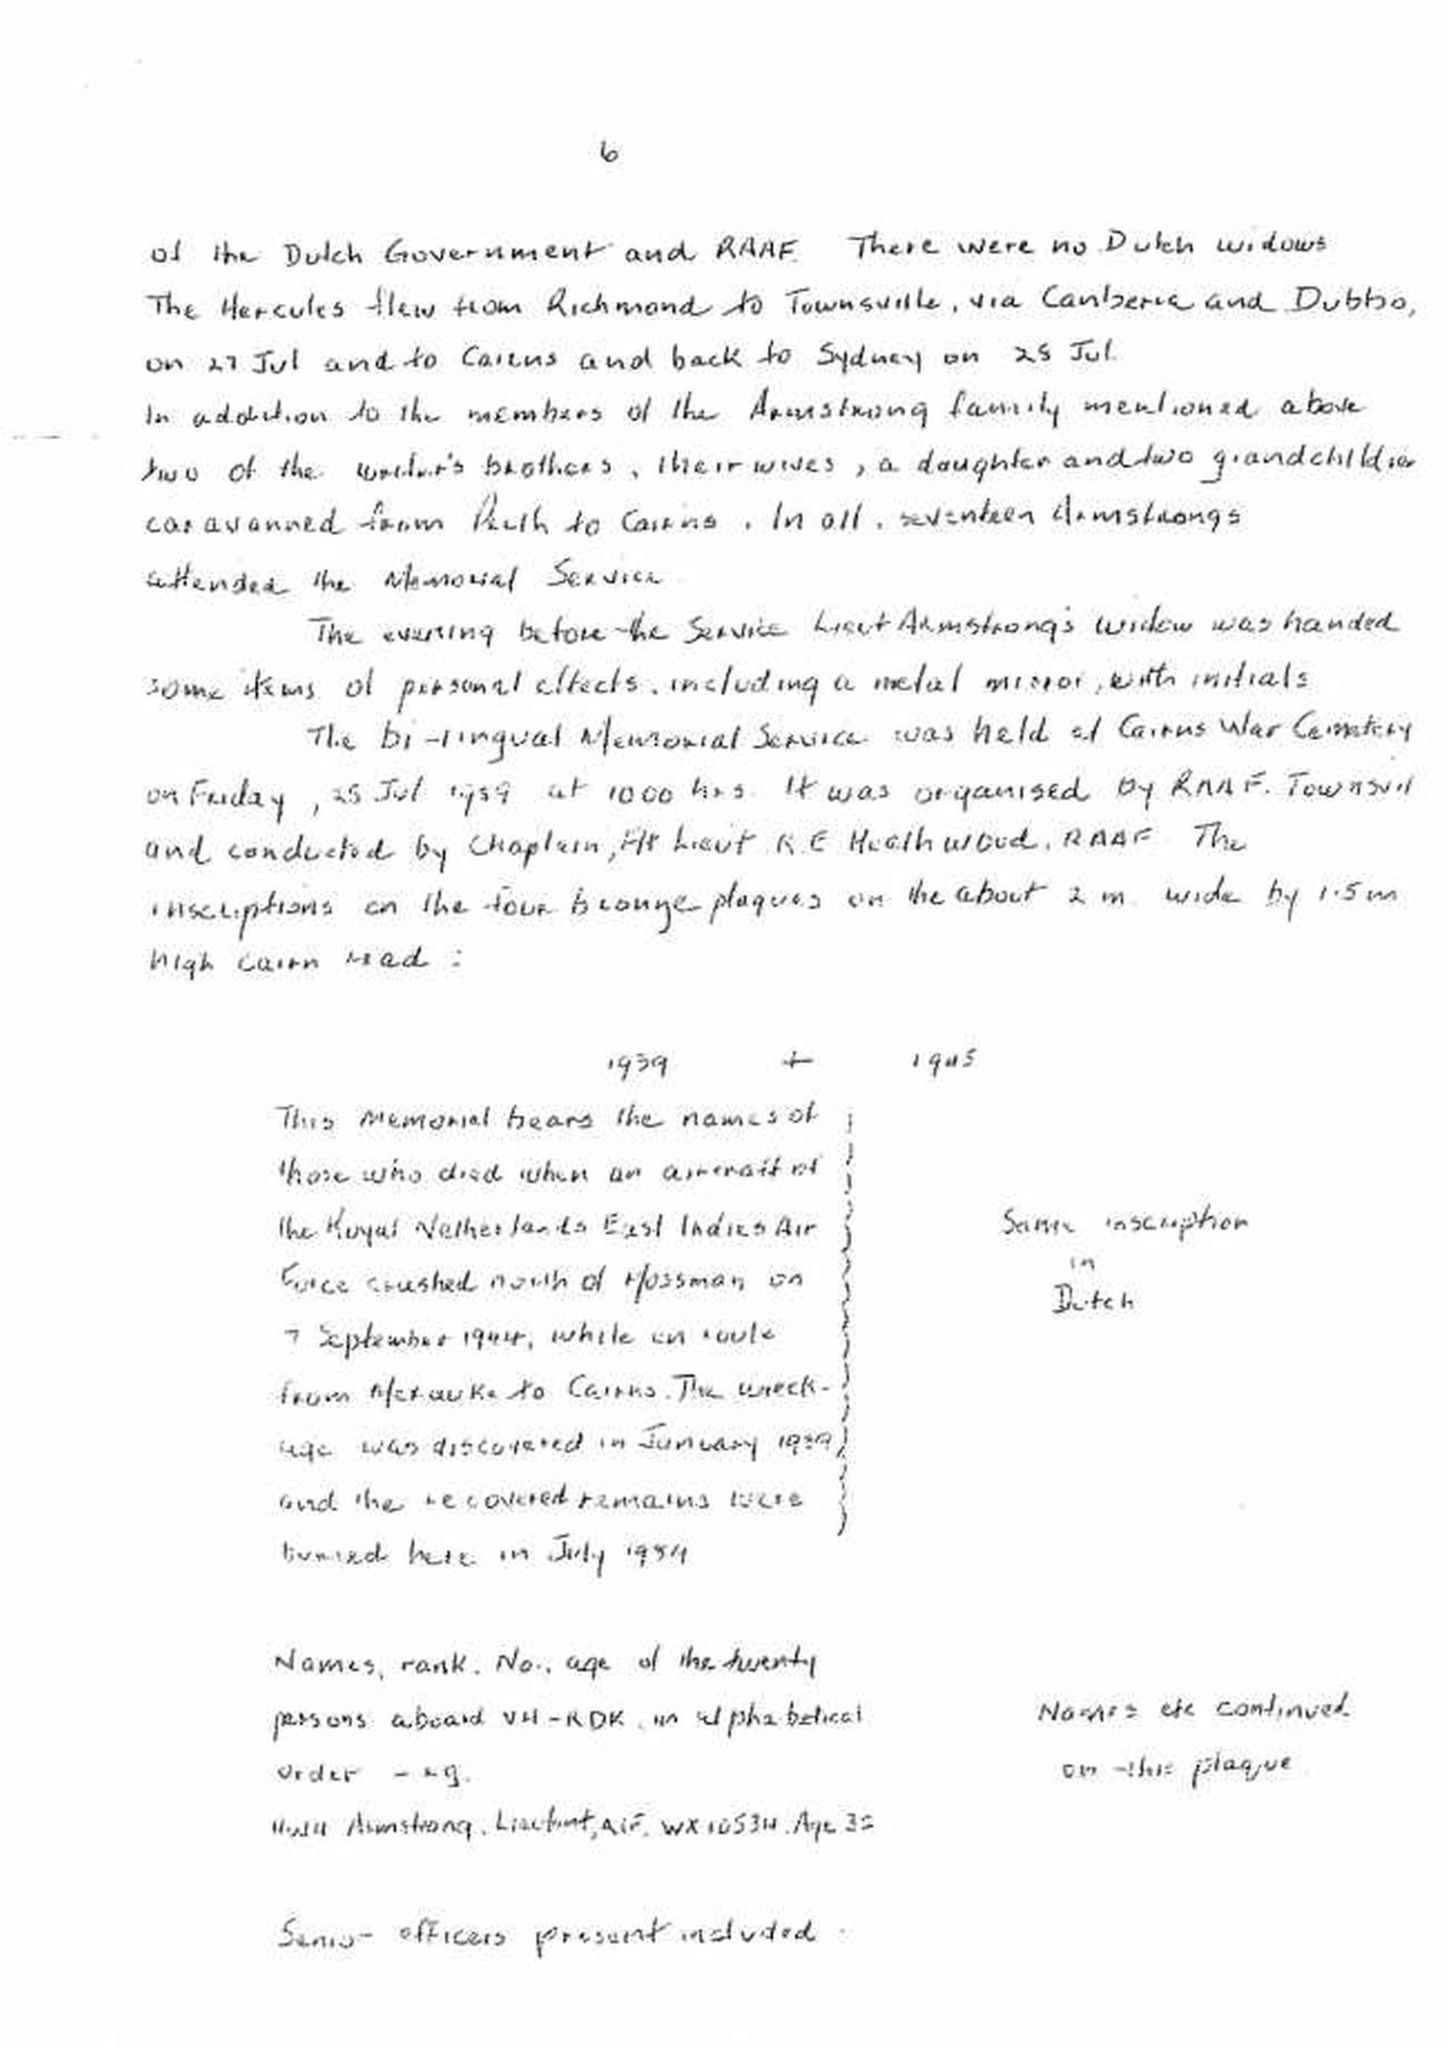 6
of the Dutch Government and RAAF. There were no Dutch widows
The Hercules flew from Richmond to Townsville, via Canberra and Dubbo,
on 27 Jul and to Cairns and back to Sydney on 28 Jul.
In addition to the members of the Armstrong family mentioned above
two of the writer's brothers, their wives, a daughter and two grandchildren
caravanned from Perth to Cairns. In all, seventeen Armstrongs
attended the Memorial Service
The evening before the Service Lieut Armstrong's widow was handed
some items of personal effects, including a metal mirror, with initials
The bi-lingual Memorial Service was held at Cairns War Cemetery
on Friday, 28 Jul 1989 at 1000 hrs. It was organised by RAAF. Townsvil
and conducted by Chaplain, Flt Lieut R.E Heathwood, RAAF The
inscriptions on the four bronze plaques on the about 2 m. wide by 1.5 m
high cairn read :
1939 + 1945
This Memorial bears the names of
those who died when an aircraft of
the Royal Netherlands East Indies Air
Force crashed north of Mossman on
7 September 1944, while en route
from Merauke to Cairns. The wreck-
age was discovered in January 1989
and the recovered remains were
buried here in July 1989
Same inscription
in
Dutch
Names, rank, No., age of the twenty
persons aboard VH-RDK, in alphabetical
order - eg.
Armstrong, AIF, Age
Names etc continued
on this plaque
Senior officers present included